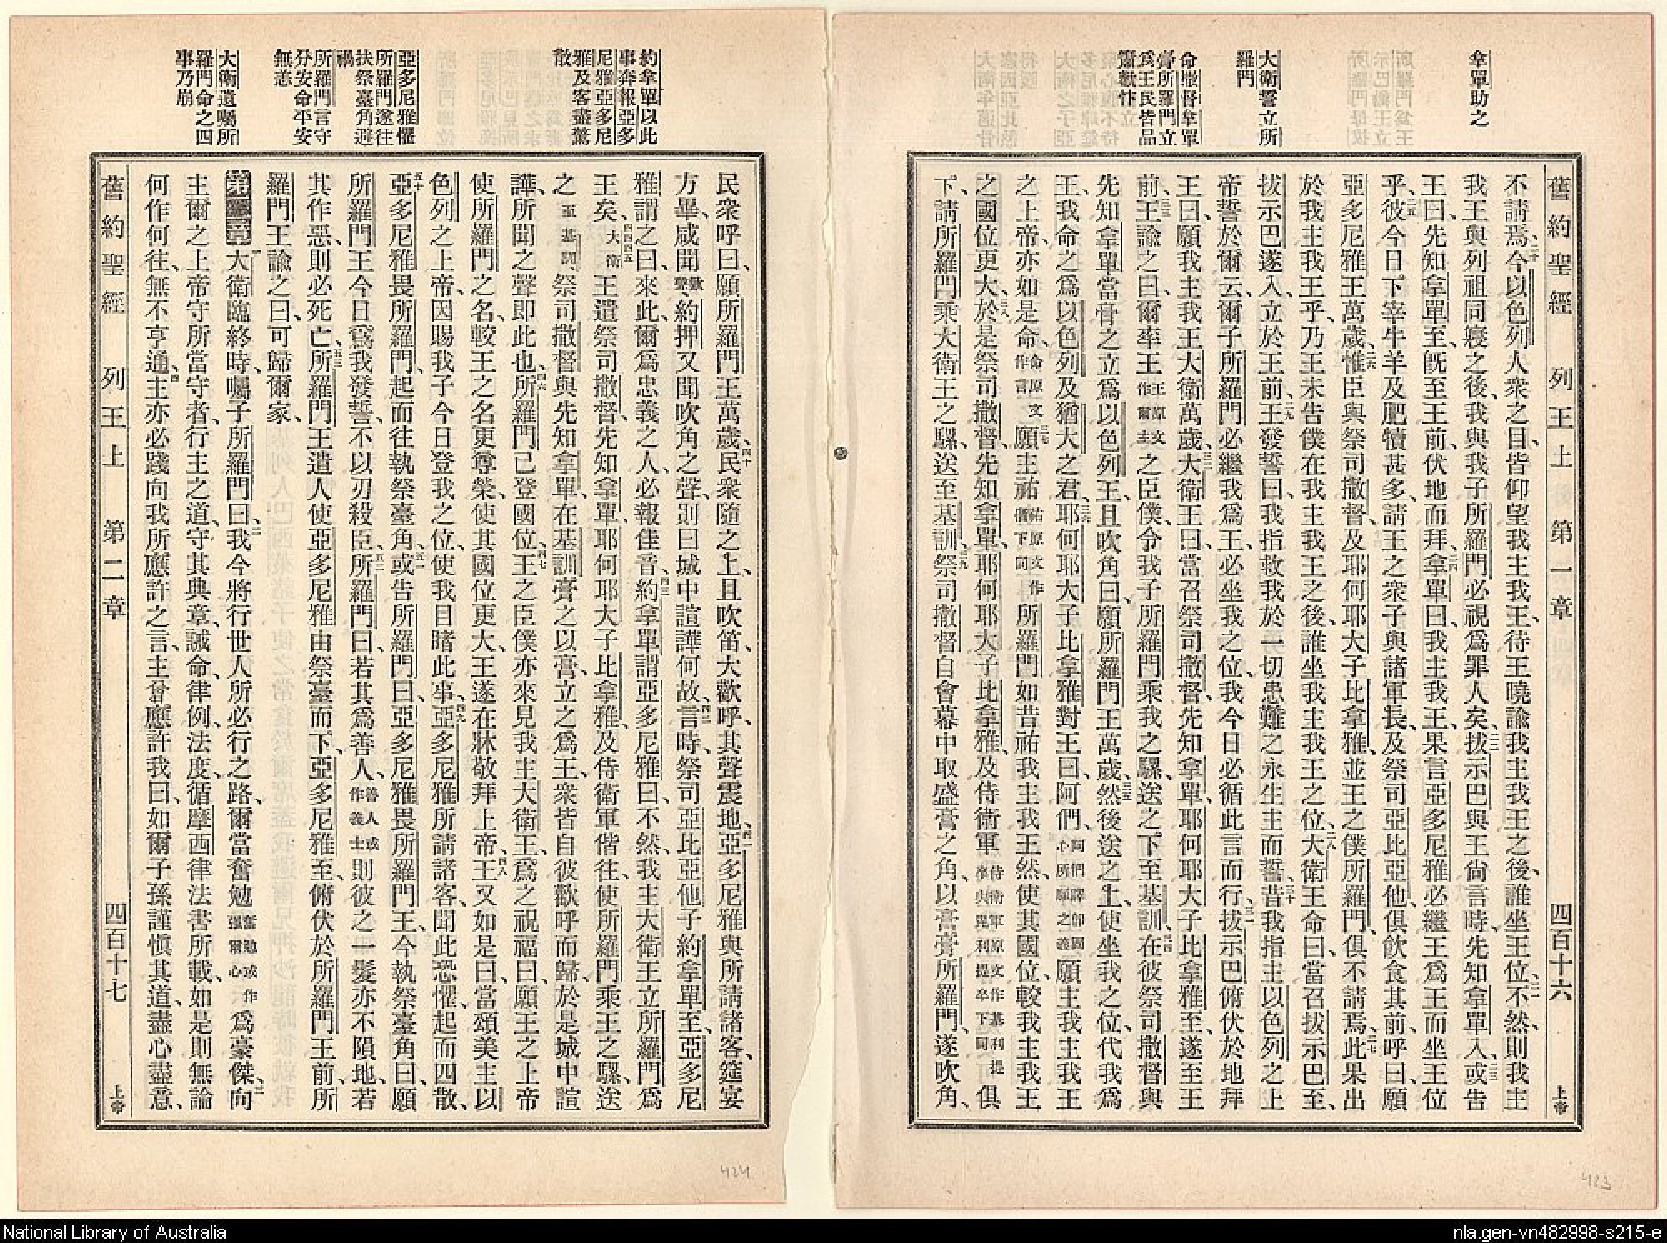 拿單助之
大衛誓立所
羅門
命撒督拿單
膏所羅門立
爲王民皆品
簫歡忭
舊約聖經 列王上 第一章 四百十六 上帝
不請焉、二十今以色列人衆之目、皆仰望我主我王、待王曉諭我主我王之後、誰坐王位、二一不然、則我主
我王與列祖同寢之後、我與我子所羅門必視爲罪人矣、二二拔示巴與王尙言時、先知拿單入、二三或告
王曰、先知拿單至、旣至王前、伏地而拜、二四拿單曰、我主我王、果言亞多尼雅必繼王爲王、而坐王位
乎、二五彼今日下宰牛羊及肥犢甚多、請王之衆子與諸軍長、及祭司亞比亞他、俱飲食其前、呼曰、願
亞多尼雅王萬歲、二六惟臣與祭司撒督、及耶何耶大子比拿雅、並王之僕所羅門、俱不請焉、二七此果出
於我主我王乎、乃王未告僕、在我主我王之後、誰坐我主我王之位、二八大衛王命曰、當召拔示巴至、
拔示巴遂入立於王前、二九王發誓曰、我指救我於一切患難之永生主而誓、三十昔我指主以色列之上
帝誓於爾云、爾子所羅門必繼我爲王、必坐我之位、我今日必循此言而行、三一拔示巴俯伏於地拜
王曰、願我主我王大衛萬歲、三二大衛王曰、當召祭司撒督、先知拿單、耶何耶大子比拿雅至、遂至王
前、三三王諭之曰、爾率王王原文作爾主之臣僕、令我子所羅門乘我之騾、送之下至基訓、三四在彼祭司撒督與
先知拿單、當膏之立爲以色列王、且吹角曰、願所羅門王萬歲、三五然後送之上、使坐我之位、代我爲
王、我命之爲以色列及猶大之君、三六耶何耶大子比拿雅對王曰、阿們、阿們譯卽固心所願之義願主我主我王
之上帝、亦如是命、命原文作言三七願主祐祐原文作偕下同所羅門、如昔祐我主我王然、使其國位、較我主我王
之國位更大、三八於是祭司撒督、先知拿單、耶何耶大子比拿雅、及侍衛軍侍衛軍原文作基利提與比利提下同俱
下、請所羅門乘大衛王之騾、送至基訓、三九祭司撒督自會幕中取盛膏之角、以膏膏所羅門、遂吹角、
423
約拿單以此
事奔報亞多
尼雅亞多尼
雅及客盡驚
散
亞多尼雅懼
所羅門遂往
扶祭臺角避
禍
所羅門言守
分安命平安
無恙
大衛遺囑所
羅門命之四
事乃崩
民衆呼曰、願所羅門王萬歲、四十民衆隨之上、且吹笛、大歡呼、其聲震地、四一亞多尼雅與所請諸客、筵宴
方畢、咸聞歡聲、約押又聞吹角之聲、則曰、城中諠譁何故、四二言時、祭司亞比亞他子約拿單至、亞多尼
雅謂之曰、來此、爾爲忠義之人、必報佳音、四三約拿單謂亞多尼雅曰、不然、我主大衛王立所羅門爲
王矣、四四四五大衛王遣祭司撒督、先知拿單、耶何耶大子比拿雅、及侍衛軍偕往、使所羅門乘王之騾、送
之至基訓、祭司撒督與先知拿單、在基訓膏之以膏、立之爲王、衆皆自彼歡呼而歸、於是城中諠
譁、所聞之聲卽此也、四六所羅門已登國位、四七王之臣僕亦來見我主大衛王、爲之祝福曰、願王之上帝
使所羅門之名、較王之名更尊榮、使其國位更大、王遂在牀敬拜上帝、四八王又如是曰、當頌美主以
色列之上帝、因賜我子今日登我之位、使我目睹此事、四九亞多尼雅所請諸客、聞此恐懼、起而四散、
五十亞多尼雅畏所羅門、起而往執祭臺角、五一或告所羅門曰、亞多尼雅畏所羅門王、今執祭臺角曰、願
所羅門王今日爲我發誓、不以刃殺臣、五二所羅門曰、若其爲善人、善人或作義士則彼之一髮亦不隕地、若
其作惡、則必死亡、五三所羅門王遣人使亞多尼雅由祭臺而下、亞多尼雅至、俯伏於所羅門王前、所
羅門王諭之曰、可歸爾家、
第二章 一大衛臨終時、囑子所羅門曰、二我今將行世人所必行之路、爾當奮勉、奮勉或作強爾心爲豪傑、三向
主爾之上帝守所當守者、行主之道、守其典章、誡命、律例、法度、循摩西律法書所載、如是則無論
何作何往、無不亨通、四主亦必踐向我所應許之言、主曾應許我曰、如爾子孫謹愼其道、盡心盡意、
舊約聖經 列王上 第二章 四百十七 上帝
424
National Library of Australia
nla.gen-vn482998-s215-e